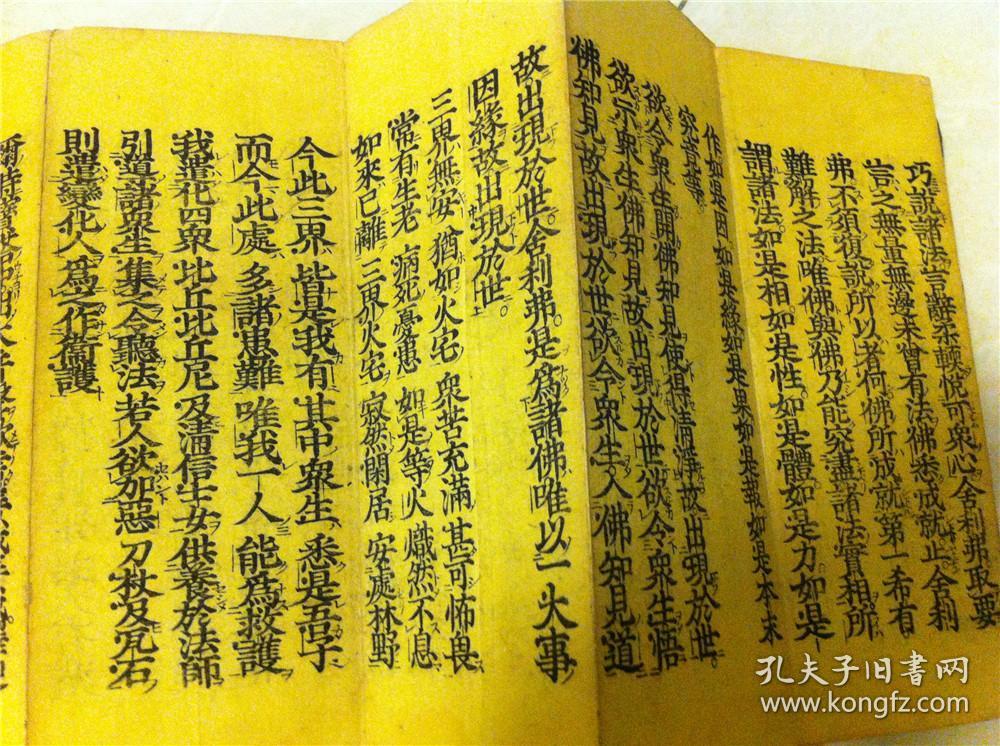 巧說諸法言辭柔軟悅可衆心舍利弗取要
言之無量無邊未曾有法佛悉成就止舍利
弗不須復說所以者何佛所成就第一希有
難解之法唯佛與佛乃能究盡諸法實相所
謂諸法如是相如是性如是體如是力如是
作如是因如是緣如是果如是報如是本末
究竟等
欲令衆生開佛知見使得淸淨故出現於世
欲示衆生佛知見故出現於世欲令衆生悟
佛知見故出現於世欲令衆生入佛知見道
故出現於世舍利弗是爲諸佛唯以一大事
因緣故出現於世
三界無安 猶如火宅 衆苦充滿 甚可怖畏
常有生老 病死憂患 如是等火 熾然不息
如來已離 三界火宅 寂然閑居 安處林野
今此三界 皆是我有 其中衆生 悉是吾子
而今此處 多諸患難 唯我一人 能爲救護
我遣化四衆 比丘比丘尼 及淸信士女 供養於法師
引導諸衆生 集之令聽法 若人欲加惡 刀杖及瓦石
則遣變化人 爲之作衞護
孔夫子旧书网
www.kongfz.com